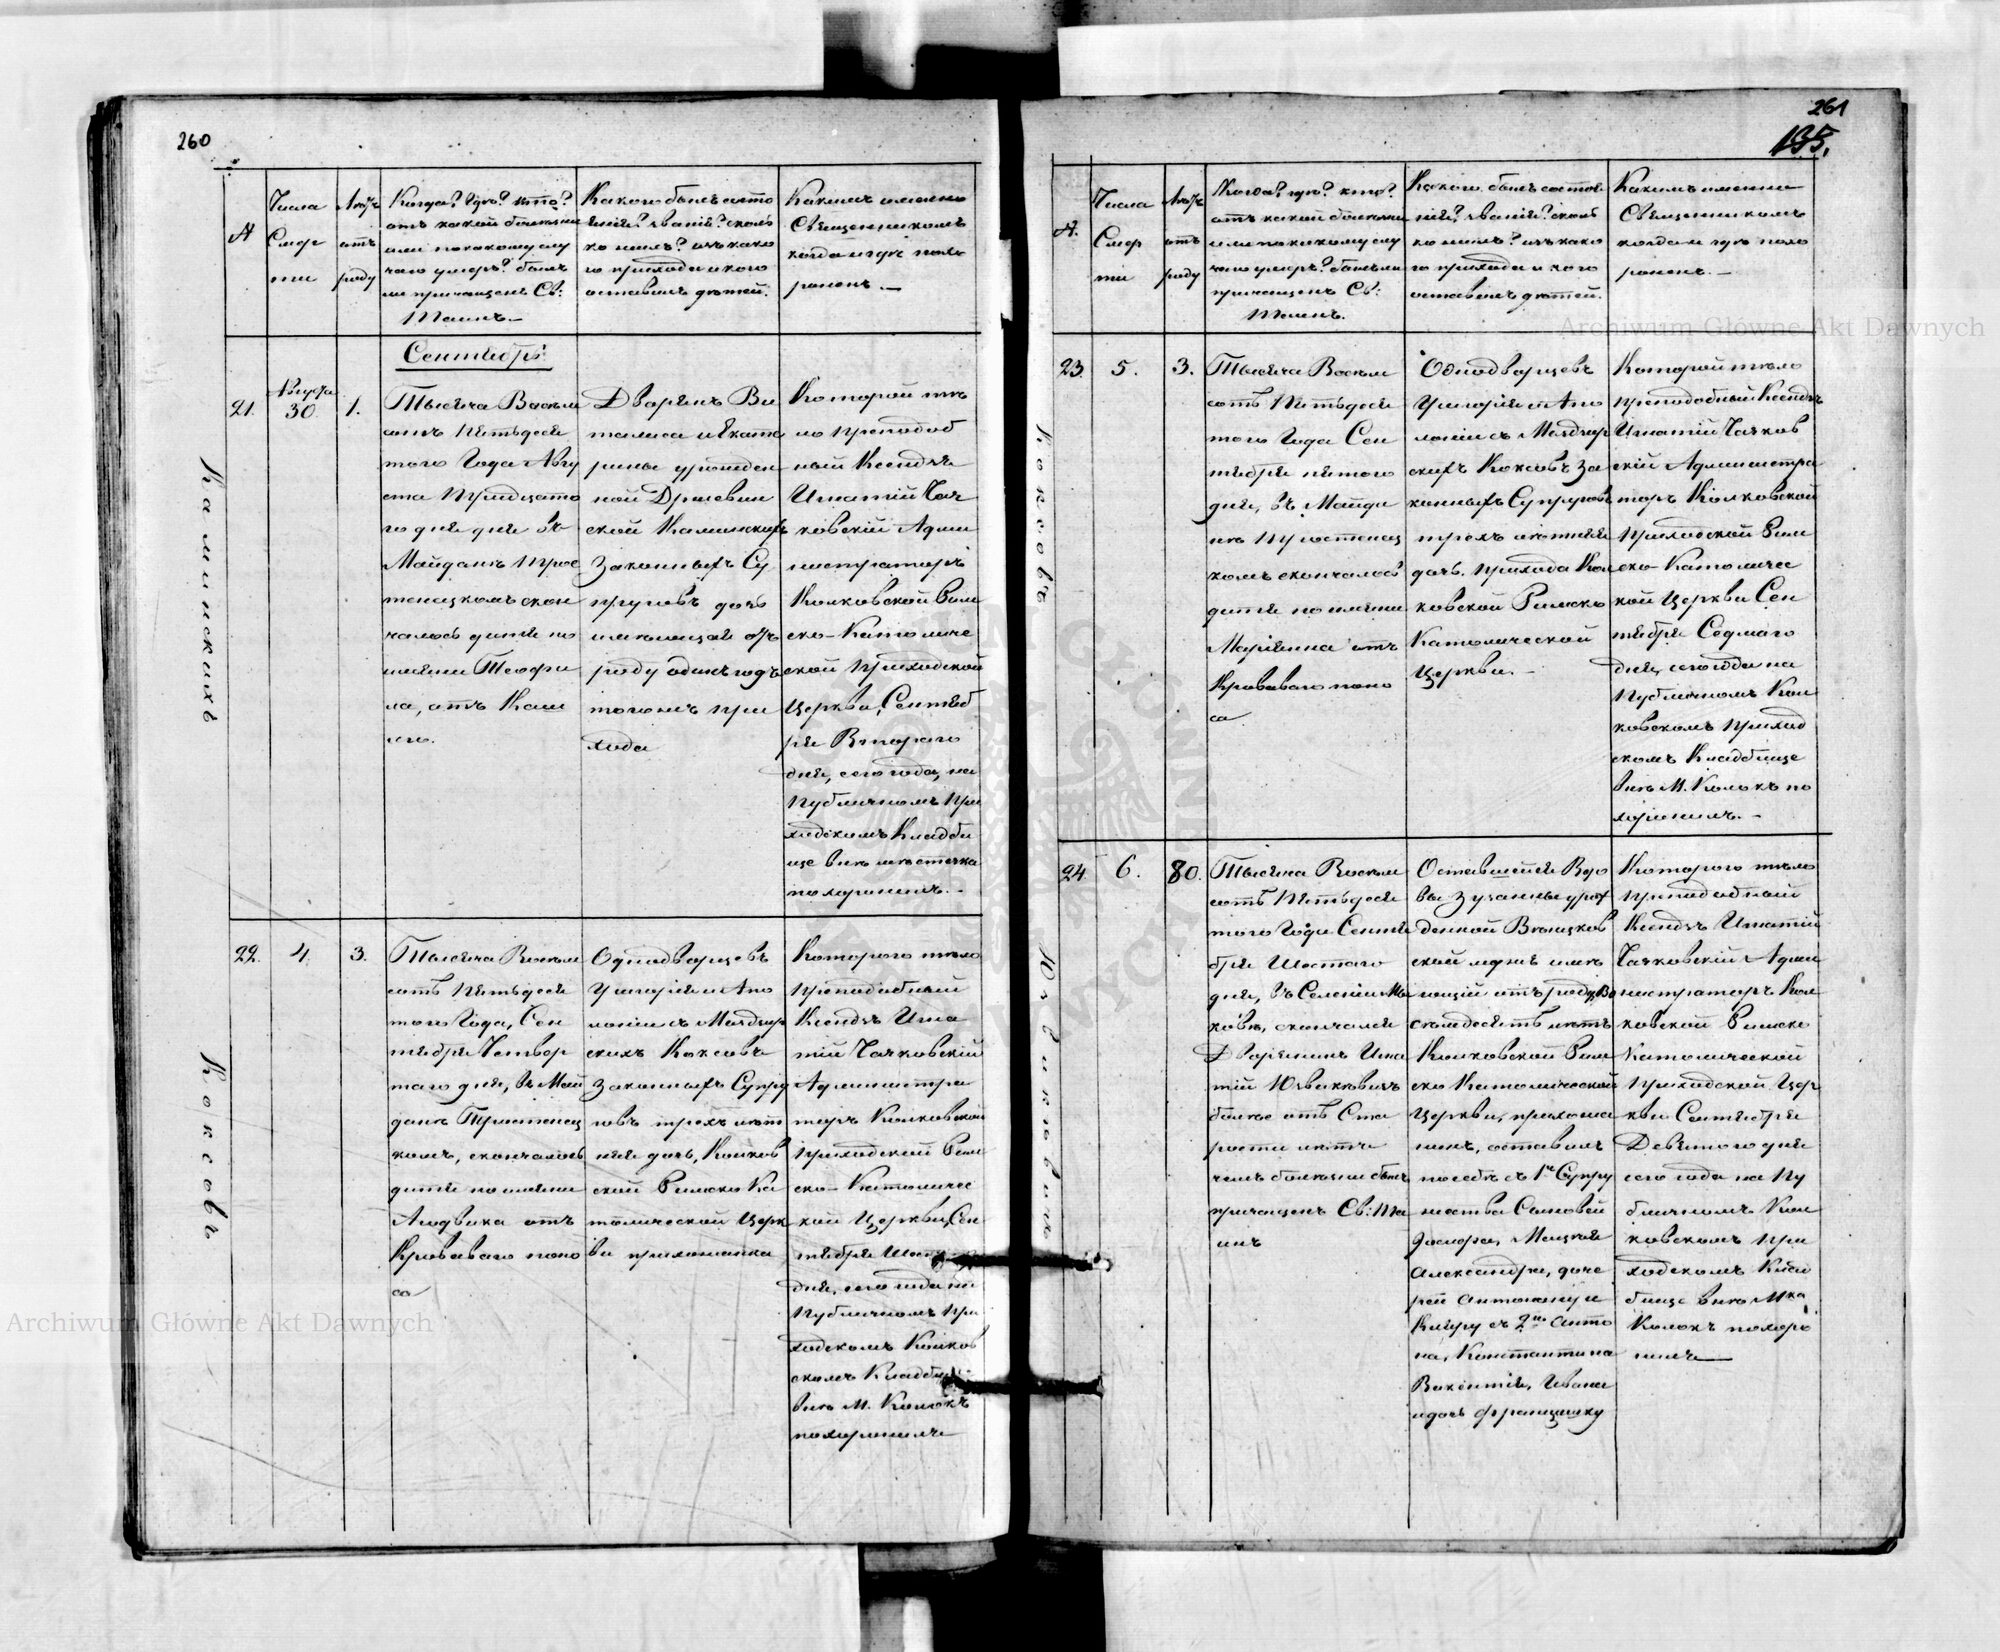 260
№
Числа
Смер
ти
Лѣтъ
отъ
роду
Когда? Гдѣ? кто?
отъ какой болезни
или покакому слу
чаю умеръ? былъ
ли причащенъ Св:
Таинъ.—
Какого былъ состо
янія? званія? сколь
ко нимъ? изъ како
го прихода и кого
оставилъ дѣтей.
Какимъ именно
Священникомъ
когда и гдѣ похо
роненъ.—
Каминскихъ
21.
Августа
30.
1.
Сентябрь
Тысяча Восем
сотъ Пятьдеся
того Года Авгу
ста Тридцато
го дня дня въ
Майданѣ Трос
тенецкомъ скон
чалось дитя по
имени Теофи
ла, отъ Каш
ля.
Дворянъ Ви
талиса и Екате
рины урожден
ной
ской Каминскихъ
Законныхъ Су
пруговъ дочь
имѣющая отъ
роду одинъ годъ
тогожъ при
хода
Которой тѣ
ло преподоб
ный Ксендзъ
Игнатій Чач
ковскій Адми
нистраторъ
Колковской Рим
ско-Католиче
ской Приходской
Церкви, Сентяб
ря Втораго
дня, сего года, на
Публичномъ При
ходскомъ Кладби
ще внѣ мѣстечка
похоронилъ.—
Коксовъ
22.
4.
3.
Тысяча Восем
сотъ Пятьдеся
того Года, Сен
тября Четвер
таго дня, въ Май
данѣ Тростенец
комъ, скончалось
дитя по имени
Людвика отъ
Кроваваго поно
са
Однодворцевъ
Григорія и Апо
лоніи съ Мазлер
скихъ Коксовъ
Законныхъ Супру
говъ трехъ лѣт
няя дочь, Колков
ской Римско Ка
толической Церк
ви прихожанка
Котораго тѣло
Преподобный
Ксендзъ Игна
тій Чачковскій
Администра
торъ Колковской
Приходской Рим
ско-Католичес
кой Церкви, Сен
тября
дня, сего года на
Публичномъ При
ходскомъ Колков
скомъ Кладбище
внѣ М. Колокъ
похоронилъ
261
135.
№.
Числа
Смер
ти
Лѣтъ
отъ
роду
Когда? гдѣ? кто?
отъ какой болезни
или покакому слу
чаю умеръ? былъ ли
причащенъ Св:
Таинъ.
Какого былъ состоя
нія? званія? сколь
ко нимъ? изъ како
го прихода и кого
оставилъ дѣтей.
Какимъ именно
Священникомъ
когда и гдѣ похо
роненъ.—
Коксовъ
23.
5.
3.
Тысяча Восем
сотъ Пятьдеся
того Года Сен
тября пятого
дня, въ Майда
нѣ Тростенец
комъ скончалось
дитя по имени
Маріянна отъ
Кроваваго поно
са.
Однодворцевъ
Григорія и Апо
лоніи съ Мазлер
скихъ Коксовъ за
конныхъ Супруговъ
трехъ лѣтняя
дочь. прихода Кол
ковской Римско
Католической
Церкви.—
Которой тѣло
Преподобный Ксендзъ
Игнатій Чачков
скій Администра
торъ Колковской
Приходской Рим
ско-Католичес
кой Церкви Сен
тября Седмаго
дня, сего года на
Публичномъ Кол
ковскомъ Приход
скомъ Кладбище
внѣ М. Колокъ по
хоронилъ.—
24.
6.
80.
Тысяча Восем
сотъ Пятьдеся
того Года Сентя
бря Шестаго
дня, въ Селеніи
ковѣ, скончался
Дворянинъ Игна
тій
болѣе отъ Ста
рости нѣже
чемъ болезни бывъ
причащенъ Св: Та
инъ
Оставшейся Вдо
вы Зузанны урож
денной
ской мужъ имѣ
ющій отъ роду Во
семдесятъ лѣтъ
Колковской Рим
ско Католической
Церкви, прихожа
нинъ, оставилъ
по себѣ съ 1го Супру
жества Сыновей
Александра, доче
рей Антонину и
съ 2го Анто
на, Константина
Викентія, Ивана
и дочь Францишку
Котораго тѣло
Преподобный
Ксендзъ Игнатій
Чачковскій Адми
нистраторъ Кол
ковской Римско
Католической
Приходской Цер
кви Сентября
Девятого дня
сего года на Пу
бличномъ Кол
ковскомъ При
ходскомъ Клад
бище внѣ Мка
Колокъ похоро
нилъ—
Archiwum Główne Akt Dawnych
Archiwum Główne Akt Dawnych